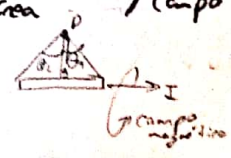 rea / campo
P
θ₂ θ₁
I
campo
magnético